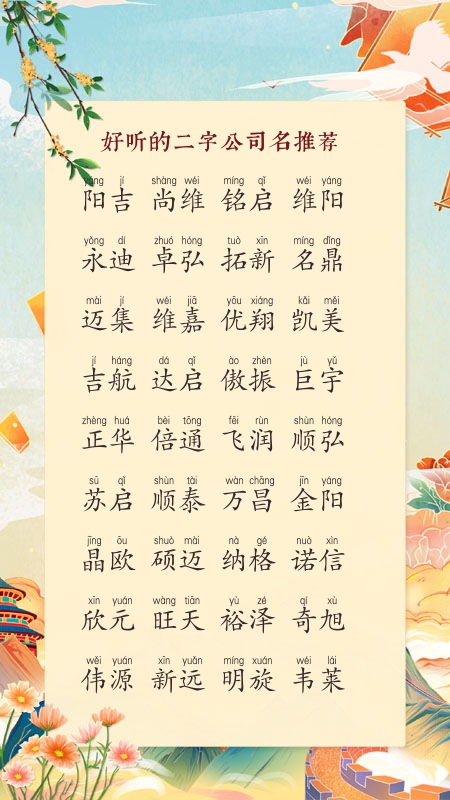 好听的二字公司名推荐
yáng jí shàng wéi míng qǐ wéi yáng
阳吉 尚维 铭启 维阳
yǒng dí zhuó hóng tuò xīn míng dǐng
永迪 卓弘 拓新 名鼎
mài jí wéi jiā yōu xiáng kǎi měi
迈集 维嘉 优翔 凯美
jí háng dá qǐ ào zhèn jù yǔ
吉航 达启 傲振 巨宇
zhèng huá bèi tōng fēi rùn shùn hóng
正华 倍通 飞润 顺弘
sū qǐ shùn tài wàn chāng jīn yáng
苏启 顺泰 万昌 金阳
jīng ōu shuò mài nà gé nuò xìn
晶欧 硕迈 纳格 诺信
xīn yuán wàng tiān yù zé qí xù
欣元 旺天 裕泽 奇旭
wěi yuán xīn yuǎn míng xuán wéi lái
伟源 新远 明旋 韦莱